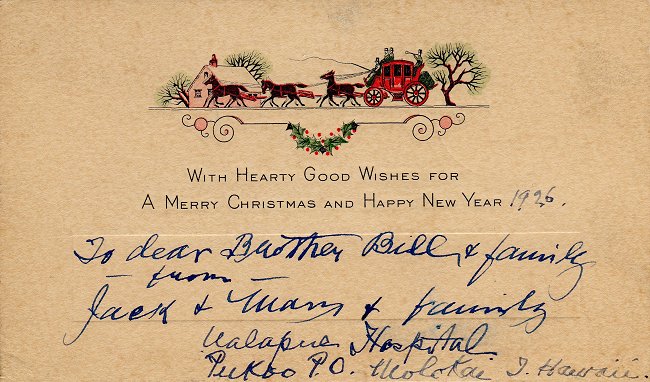 With Hearty Good Wishes for
A Merry Christmas and Happy New Year 1926.
To dear Brother Bill & family
— from —
Jack & Mary & family
Ualapue Hospital
Pukoo P.O. Molokai T. Hawaii.